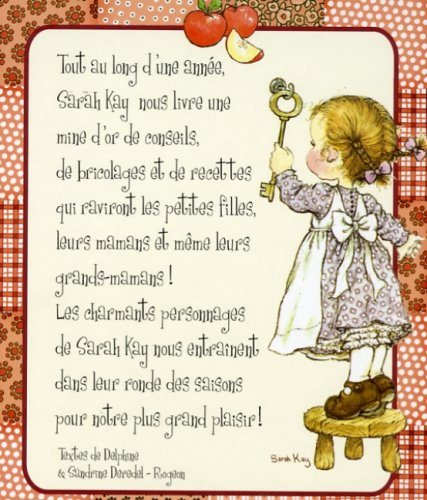 Tout au long d'une année,
Sarah Kay nous livre une
mine d'or de conseils,
de bricolages et de recettes
qui raviront les petites filles,
leurs mamans et même leurs
grands-mamans !
Les charmants personnages
de Sarah Kay nous entraînent
dans leur ronde des saisons
pour notre plus grand plaisir !
Textes de Delphine
& Sandrine Deredel - Rogeon
Sarah Kay